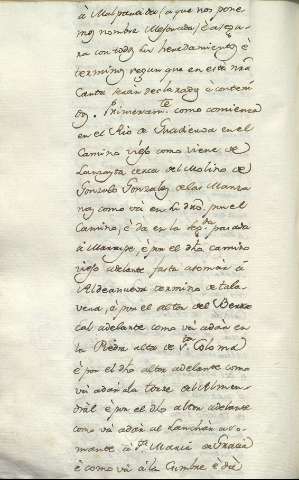 à Malpartida (a que nos pone
mos nombre Mesonada) é asegu
ra con todos sus heredamientos é
terminos segun que en esta nra
Carta serán declarados é conteni
dos. Primeram.te como comienza
en el Rio de en el
Camino viejo como viene de
cerca del Molino de
Gonzalo Gonzalez de las Manza
nas como vá en su dro, por el
Camino, é dá en la
à é por el dho camino
viejo adelante fasta asomar à
Aldeanueva termino de Tala
vera, é por el alto del Berro
cal adelante como vá à dar en
la Piedra alta de S.ta Coloma
é por el dho alto adelante como
vá à dar à la Torre del Almen
dral é por el dho alto adelante
como vá à dar al Lanchar aso
mante à S.ta Maria de Gracia
é como vá à la Cumbre é dà